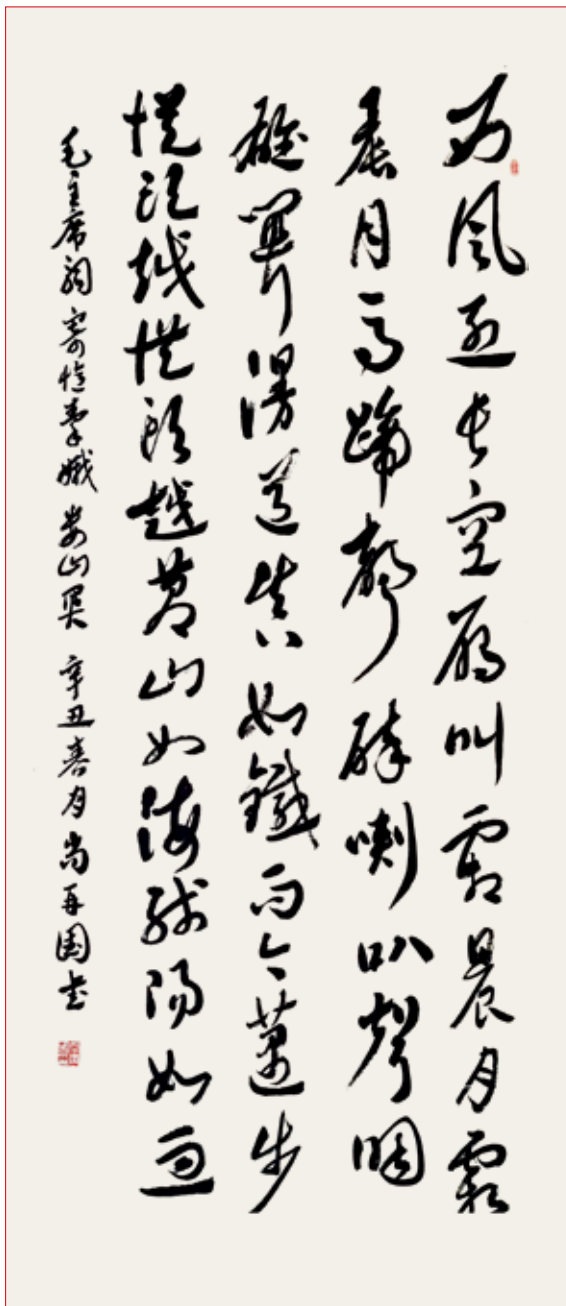 西風烈長空雁叫霜晨月霜
晨月馬蹄聲碎喇叭聲咽
雄關漫道真如鐵而今邁步
從頭越從頭越蒼山如海殘陽如血
毛主席詞寄憶秦娥 婁山關 辛丑春月尚再國書